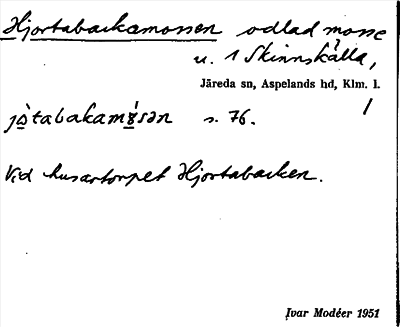 Hjortabackamossen odlad mosse
u. 1 Skinnskälla,
Järeda sn, Aspelands hd, Klm. l.
/
jò̱tabakamọ́sən s. 76.
Vid husartorpet Hjortabacken.
Ivar Modéer 1951